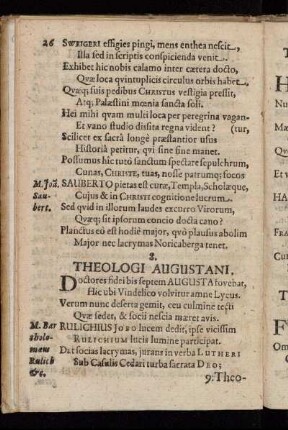 26 SWEIGERI effigies pingi, mens enthea nescit,
Illa sed in scriptis conspicienda venit.
Exhibet hic nobis calamo inter cætera docto,
Quæ loca qvintuplicis circulus orbis habet.
Quæq; suis pedibus CHRISTUS vestigia pressit,
Atq; Palæstini mœnia sancta soli.
Hei mihi qvam multi loca per peregrina vagan-
Et vano studio dissita regna vident? (tur,
Scilicet ex sacrâ longè præstantior usus
Historiâ petitur, qvi sine sine manet.
Possumus hic tutò sanctum spectare sepulchrum,
Cunas, CHRISTE, tuas, nosse patrumq; locos
M. Joh. SAUBERTO pietas est curæ, Templa, Scholæque,
Sau- Cujus & in CHRISTI cognitione lucrum.
bert. Sed qvid in illorum laudes excurro Virorum,
Quæq; sit ipsorum concio docta cano?
Planctus eò est hodiè major, qvò plausus abolim
Major nec lacrymas Noricaberga tenet.
8.
THEOLOGI AUGUSTANI.
Doctores fidei bis septem AUGUSTA fovebat,
Hic ubi Vindelico volvitur amne Lycus.
Verum nunc deserta gemit, ceu culmine tecti
Quæ sedet, & socii nescia mæret avis.
M. Bar RULICHIUS JOBO lucem dedit, ipse vicissim
tholo- RULICHIUM lucis lumine participat.
mæus Dat socias lacrymas, jurans in verba LUTHERI
Rulich Sub Casulis Cedari turba sacrata DEO;
&c.
9. Theo-